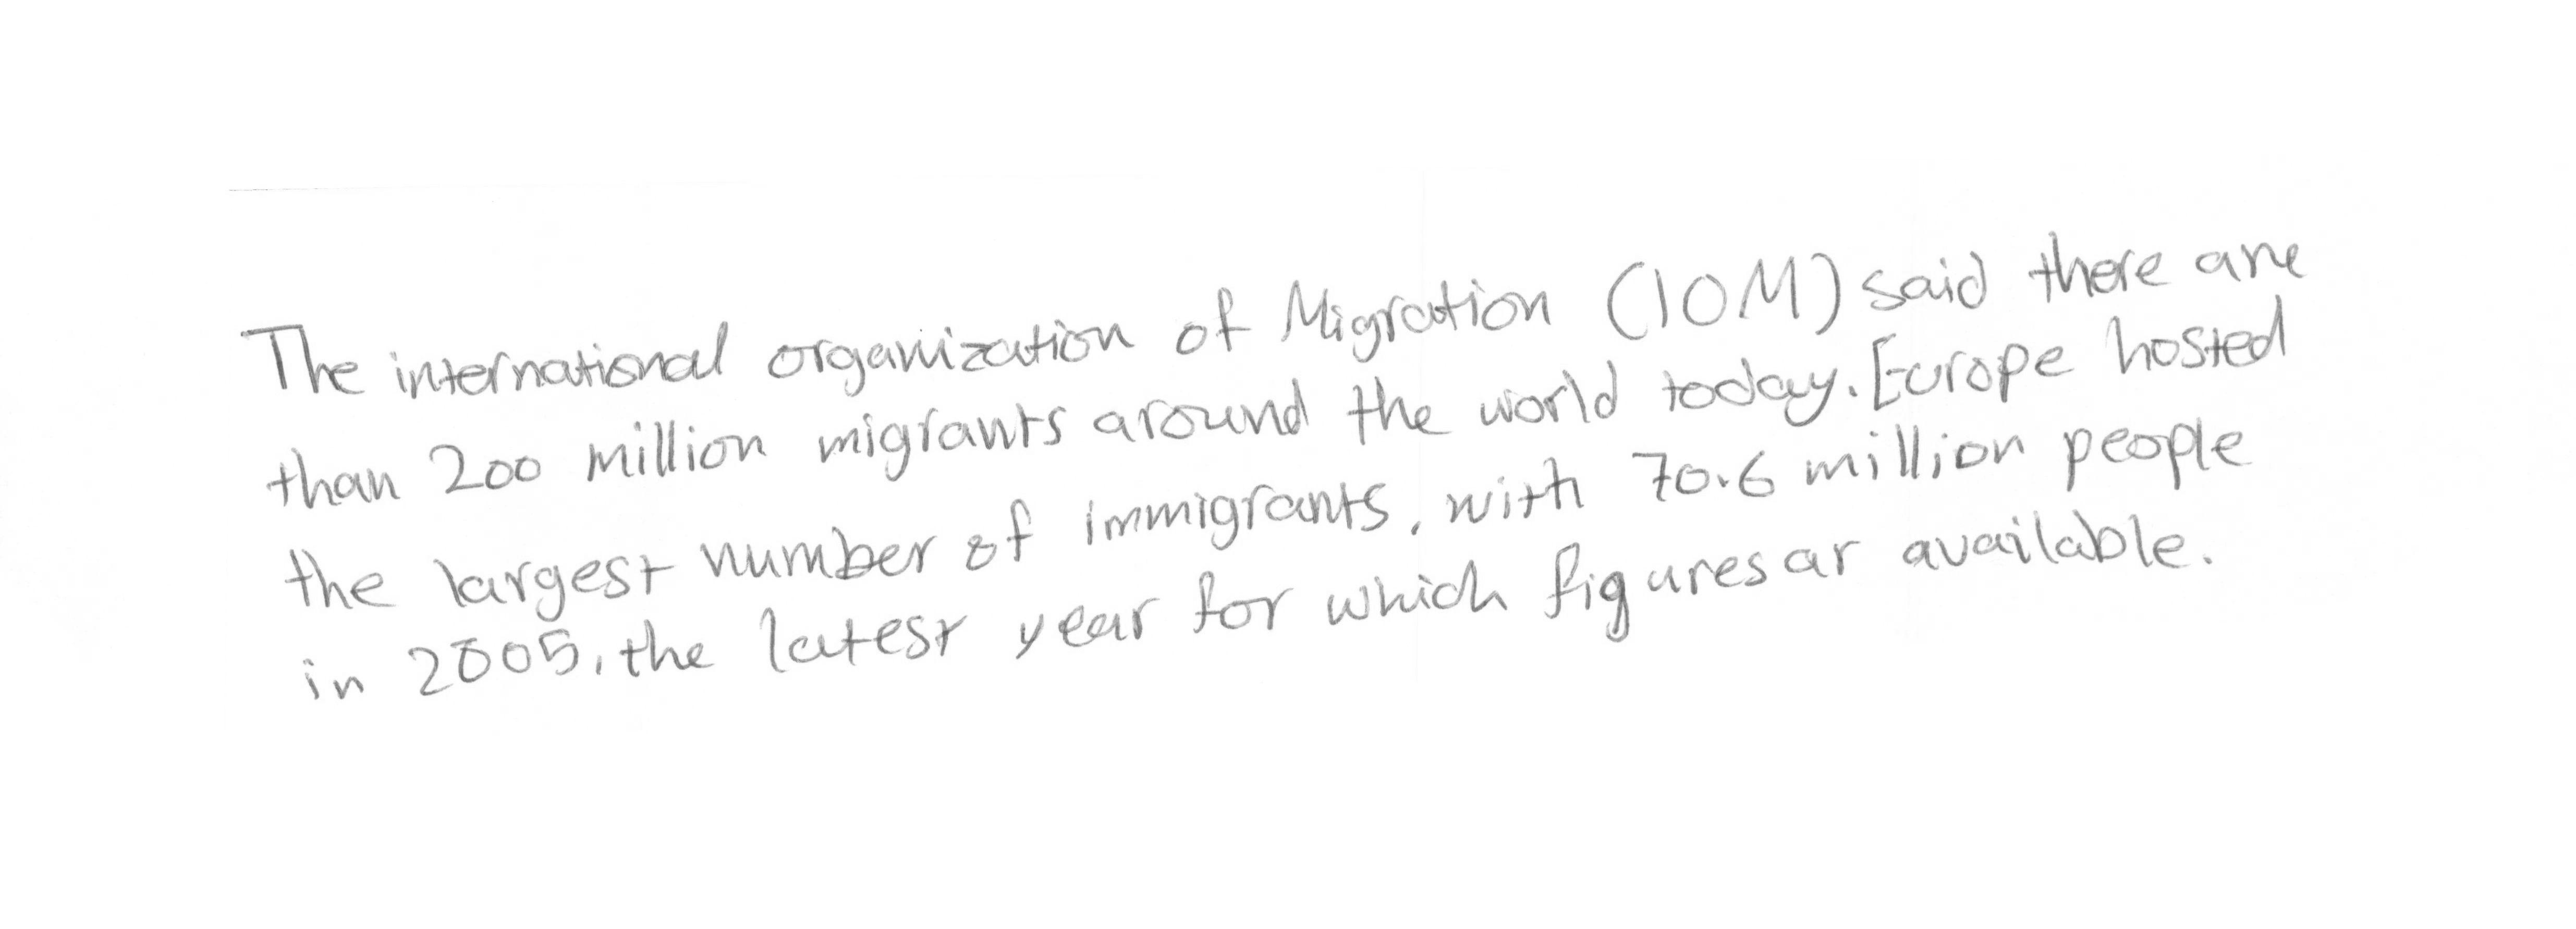 The international organization of Migration (IOM) said there are
than 200 million migrants around the world today. Europe hosted
the largest number of immigrants, with 70.6 million people
in 2005, the latest year for which figures ar available.